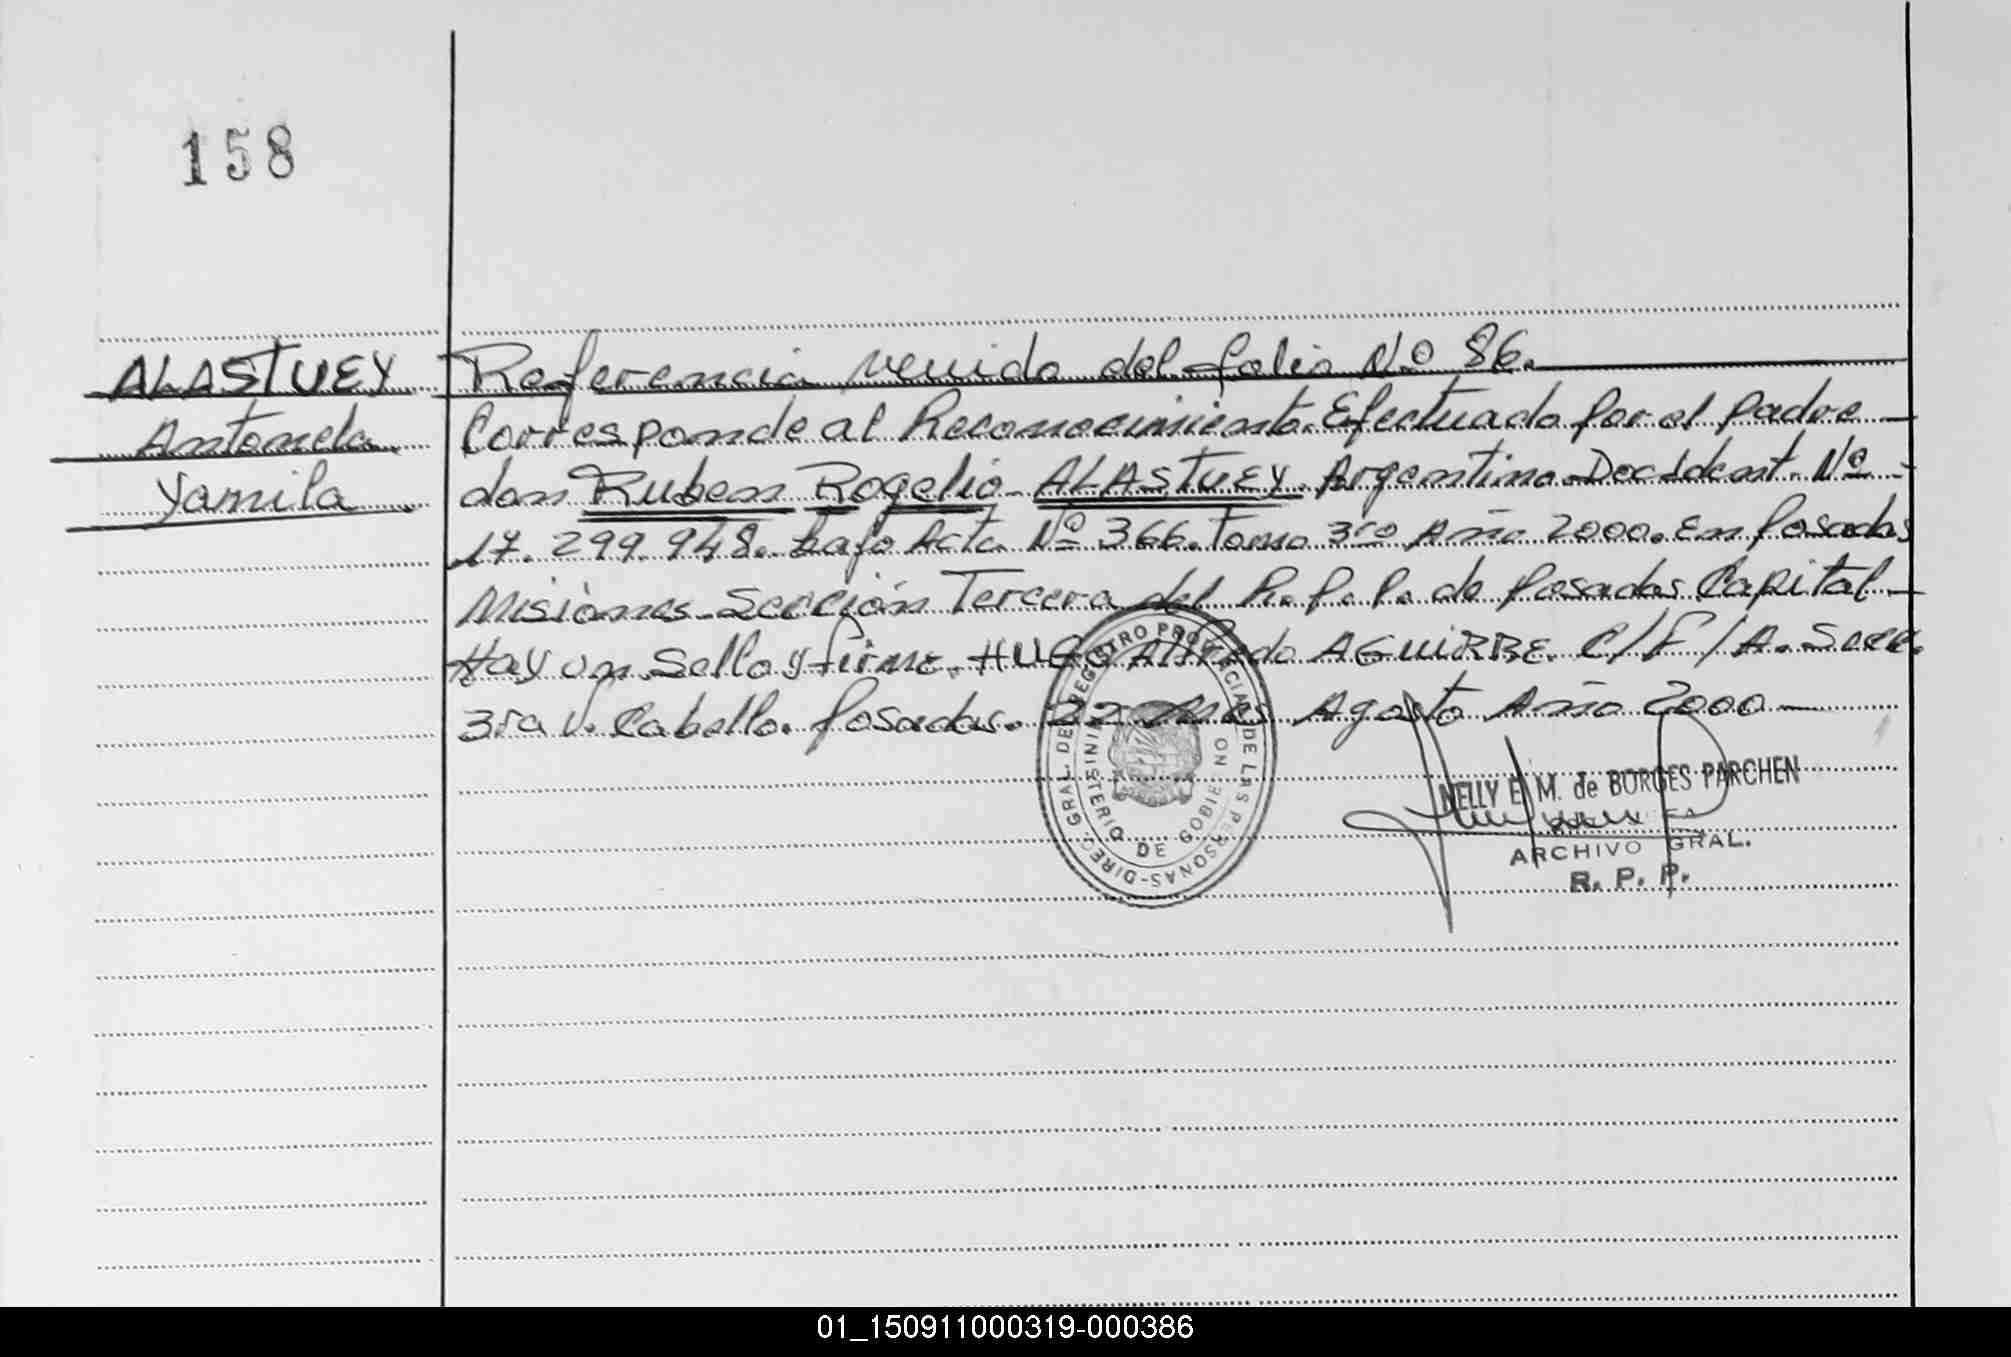 158
ALASTUEY
Antonela
Yamila
Referencia venida del folio No 86.
Corresponde al Reconocimiento. Efectuado por el padre -
don Ruben Rogelio - ALASTUEY. Argentino - Doc Ident. No -
17.299.948. bajo Acta No 366. Tomo 3ro Año 2000. en Posadas
Misiones - Sección Tercera del R.P.P. de Posadas Capital -
Hay un Sello y firma. HUGO Alfredo AGUIRRE. C/F/A. Secc.
3ra V. Cabello. Posadas. 22 Mes Agosto Año 2000 -
DIREC. GRAL. DEL REGISTRO PROVINCIAL DE LAS PERSONAS
MINISTERIO DE GOBIERNO
NELLY E. M. de BORGES PARCHEN
ARCHIVO GRAL.
R. P. P.
01_150911000319-000386